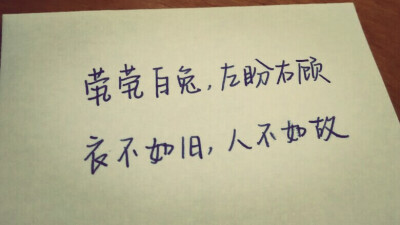 茕茕白兔,左盼右顾
衣不如旧,人不如故